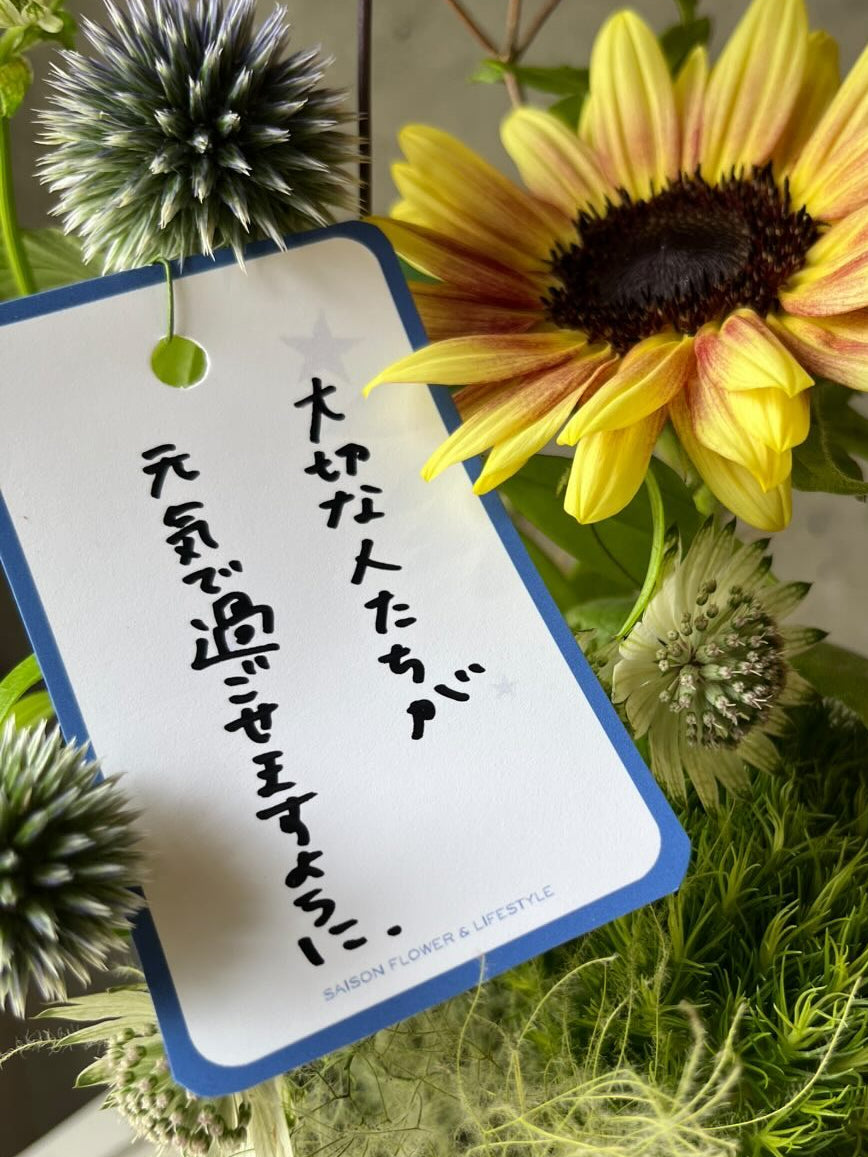 大切な人たちが
元気で過ごせますように.
SAISON FLOWER & LIFESTYLE